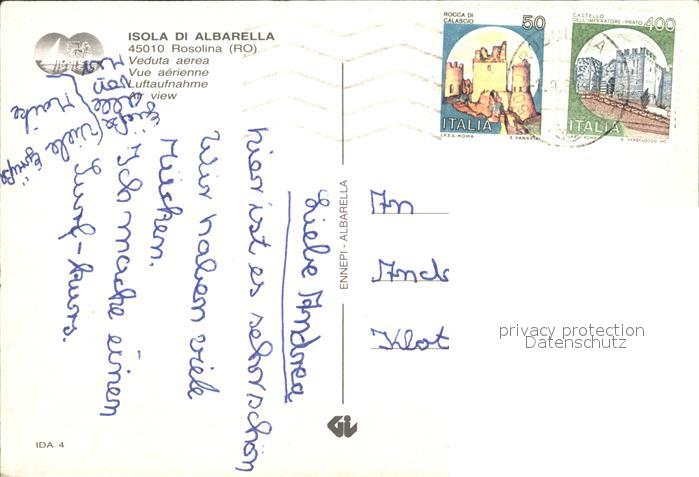 ISOLA DI ALBARELLA
45010 Rosolina (RO)
Veduta aerea
Vue aérienne
Luftaufnahme
Air view
ROCCA DI
CALASCIO
50
ITALIA
I.P.Z.S.-ROMA
CASTELLO
DELL'IMPERATORE-PRATO
400
ITALIA
Liebe Andrea
hier ist es sehr schön
Wir haben viele
Mücken.
Ich mache einen
Surf-kurs.
Viele Grüße
Maike
ENNEPI - ALBARELLA
An
Andr
Klot
privacy protection
Datenschutz
Gi
IDA 4